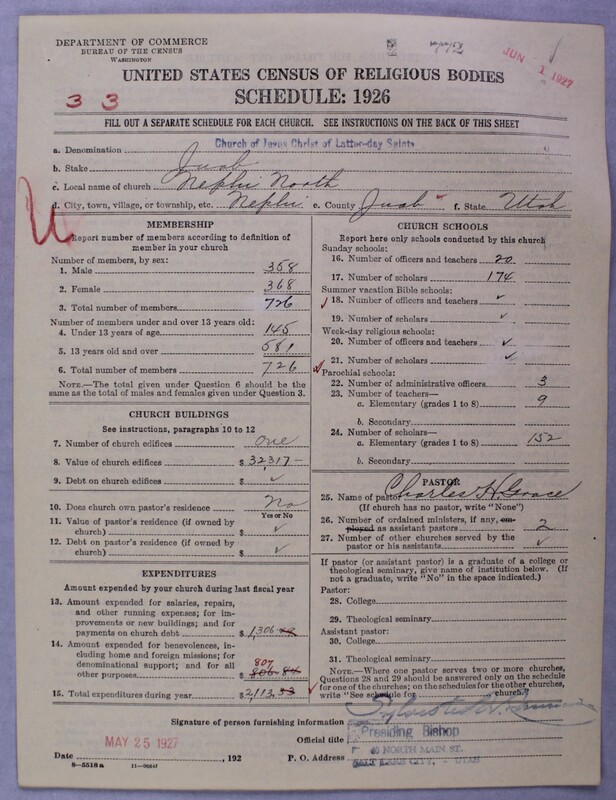 DEPARTMENT OF COMMERCE
BUREAU OF THE CENSUS
WASHINGTON
772
JUN 1 1927
UNITED STATES CENSUS OF RELIGIOUS BODIES
33
SCHEDULE: 1926
FILL OUT A SEPARATE SCHEDULE FOR EACH CHURCH. SEE INSTRUCTIONS ON THE BACK OF THIS SHEET
a. Denomination Church of Jesus Christ of Latter-day Saints
b. Stake Juab
c. Local name of church Nephi North
d. City, town, village, or township, etc. Nephi e. County Juab f. State Utah
MEMBERSHIP
Report number of members according to definition of
member in your church
Number of members, by sex:
1. Male 358
2. Female 368
3. Total number of members 726
Number of members under and over 13 years old:
4. Under 13 years of age 145
5. 13 years old and over 581
6. Total number of members 726
NOTE.—The total given under Question 6 should be the
same as the total of males and females given under Question 3.
CHURCH BUILDINGS
See instructions, paragraphs 10 to 12
7. Number of church edifices one
8. Value of church edifices $ 32317-
9. Debt on church edifices $ ✓
10. Does church own pastor's residence No
Yes or No
11. Value of pastor's residence (if owned by
church) $ ✓
12. Debt on pastor's residence (if owned by
church) $ ✓
EXPENDITURES
Amount expended by your church during last fiscal year
13. Amount expended for salaries, repairs,
and other running expenses; for im-
provements or new buildings; and for
payments on church debt $ 1,306
14. Amount expended for benevolences, in-
cluding home and foreign missions; for
denominational support; and for all
other purposes $ 807 806 84
15. Total expenditures during year $ 2,113.53
CHURCH SCHOOLS
Report here only schools conducted by this church
Sunday schools:
16. Number of officers and teachers 20
17. Number of scholars 174
Summer vacation Bible schools:
18. Number of officers and teachers ✓
19. Number of scholars ✓
Week-day religious schools:
20. Number of officers and teachers ✓
21. Number of scholars ✓
Parochial schools:
22. Number of administrative officers 3
23. Number of teachers—
a. Elementary (grades 1 to 8) 9
b. Secondary
24. Number of scholars—
a. Elementary (grades 1 to 8) 152
b. Secondary
PASTOR
25. Name of pastor Charles H. Grace
(If church has no pastor, write "None")
26. Number of ordained ministers, if any, em-
ployed as assistant pastors 2
27. Number of other churches served by the
pastor or his assistants ✓
If pastor (or assistant pastor) is a graduate of a college or
theological seminary, give name of institution below. (If
not a graduate, write "No" in the space indicated.)
Pastor:
28. College
29. Theological seminary
Assistant pastor:
30. College
31. Theological seminary
NOTE.—Where one pastor serves two or more churches,
Questions 28 and 29 should be answered only on the schedule
for one of the churches; on the schedules for the other churches,
write "See schedule for church."
Signature of person furnishing information Sylvester Q. Cannon
Official title Presiding Bishop
40 NORTH MAIN ST.
Date MAY 25 1927, 192 P. O. Address SALT LAKE CITY, - UTAH
8—5518a